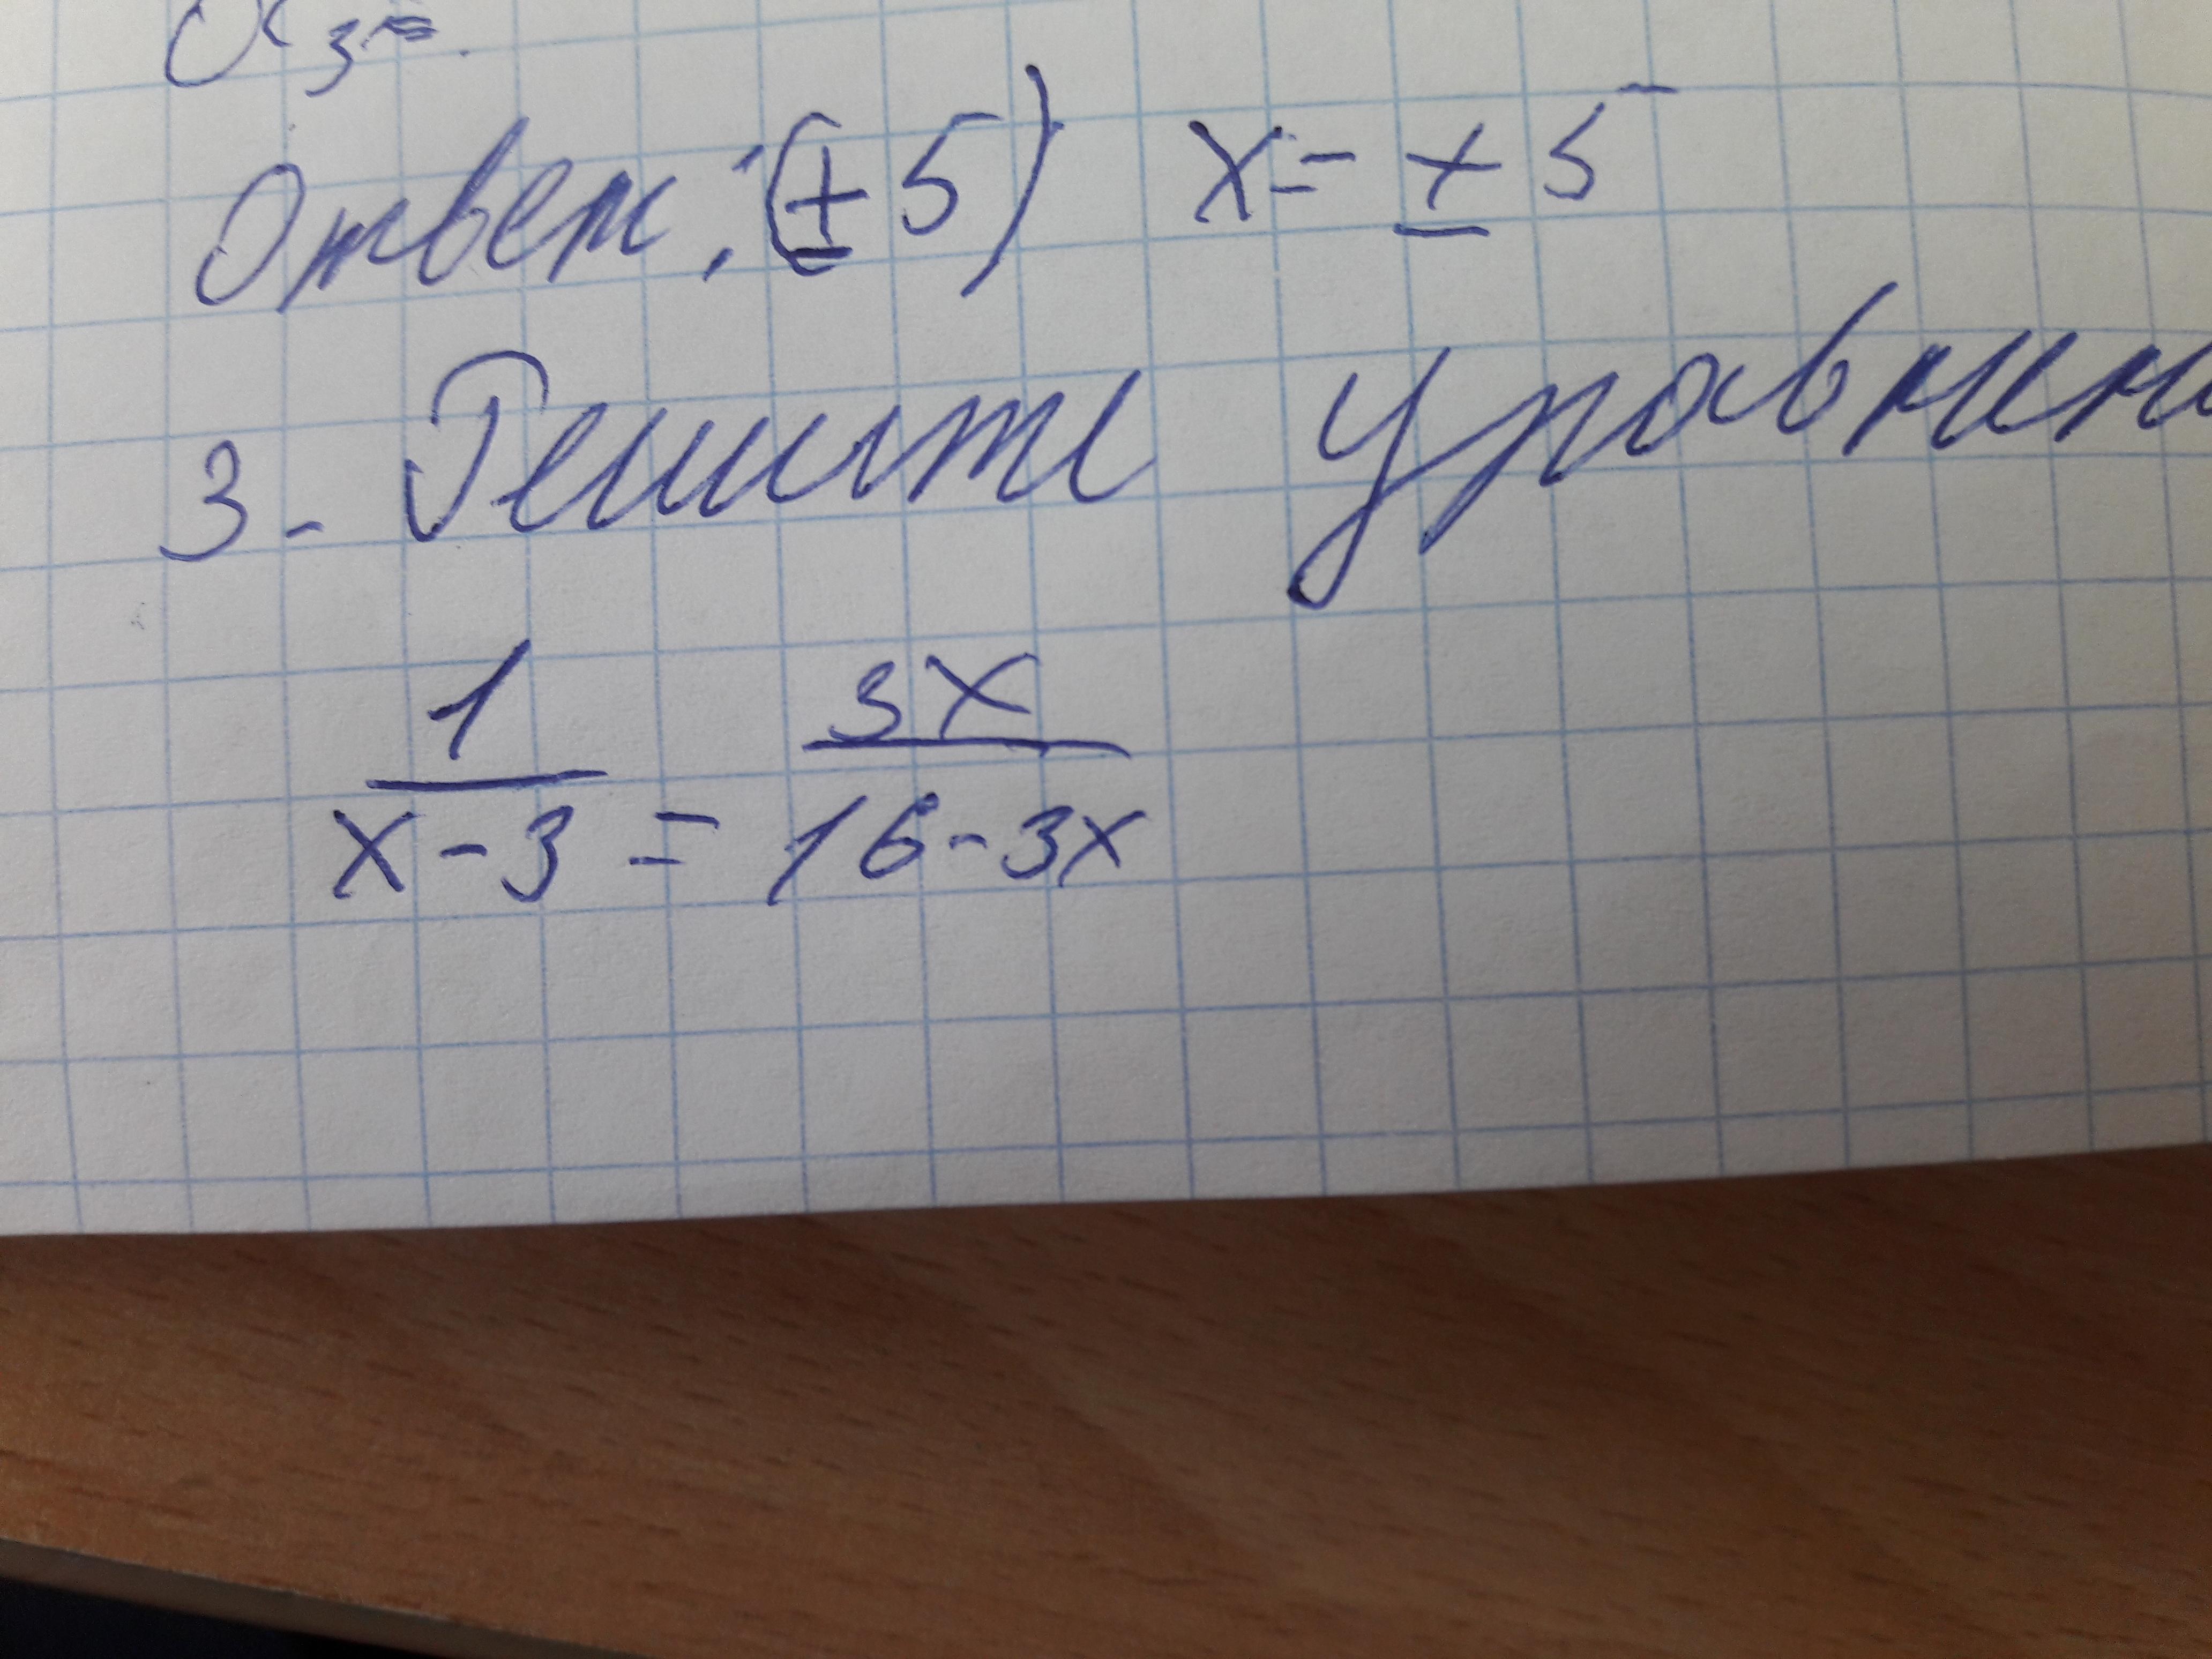 Ответ: (± 5) x = ± 5
3. Решите уравнен
1 3x
x - 3 = 16 - 3x